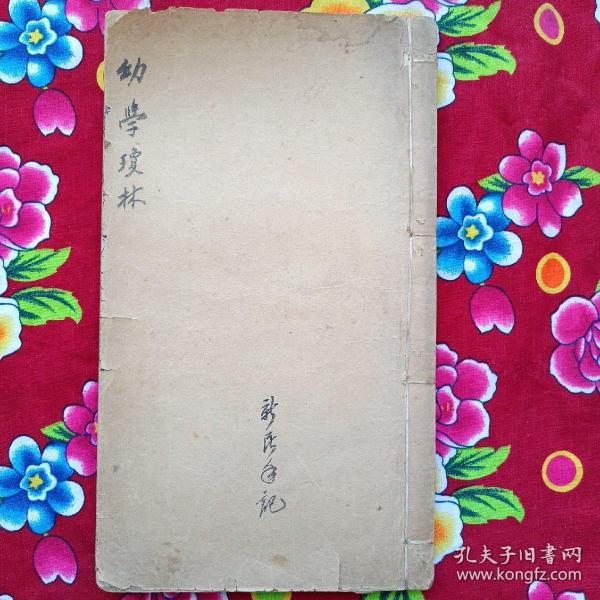 幼學瓊林
記
孔夫子旧書网
www.kongfz.com